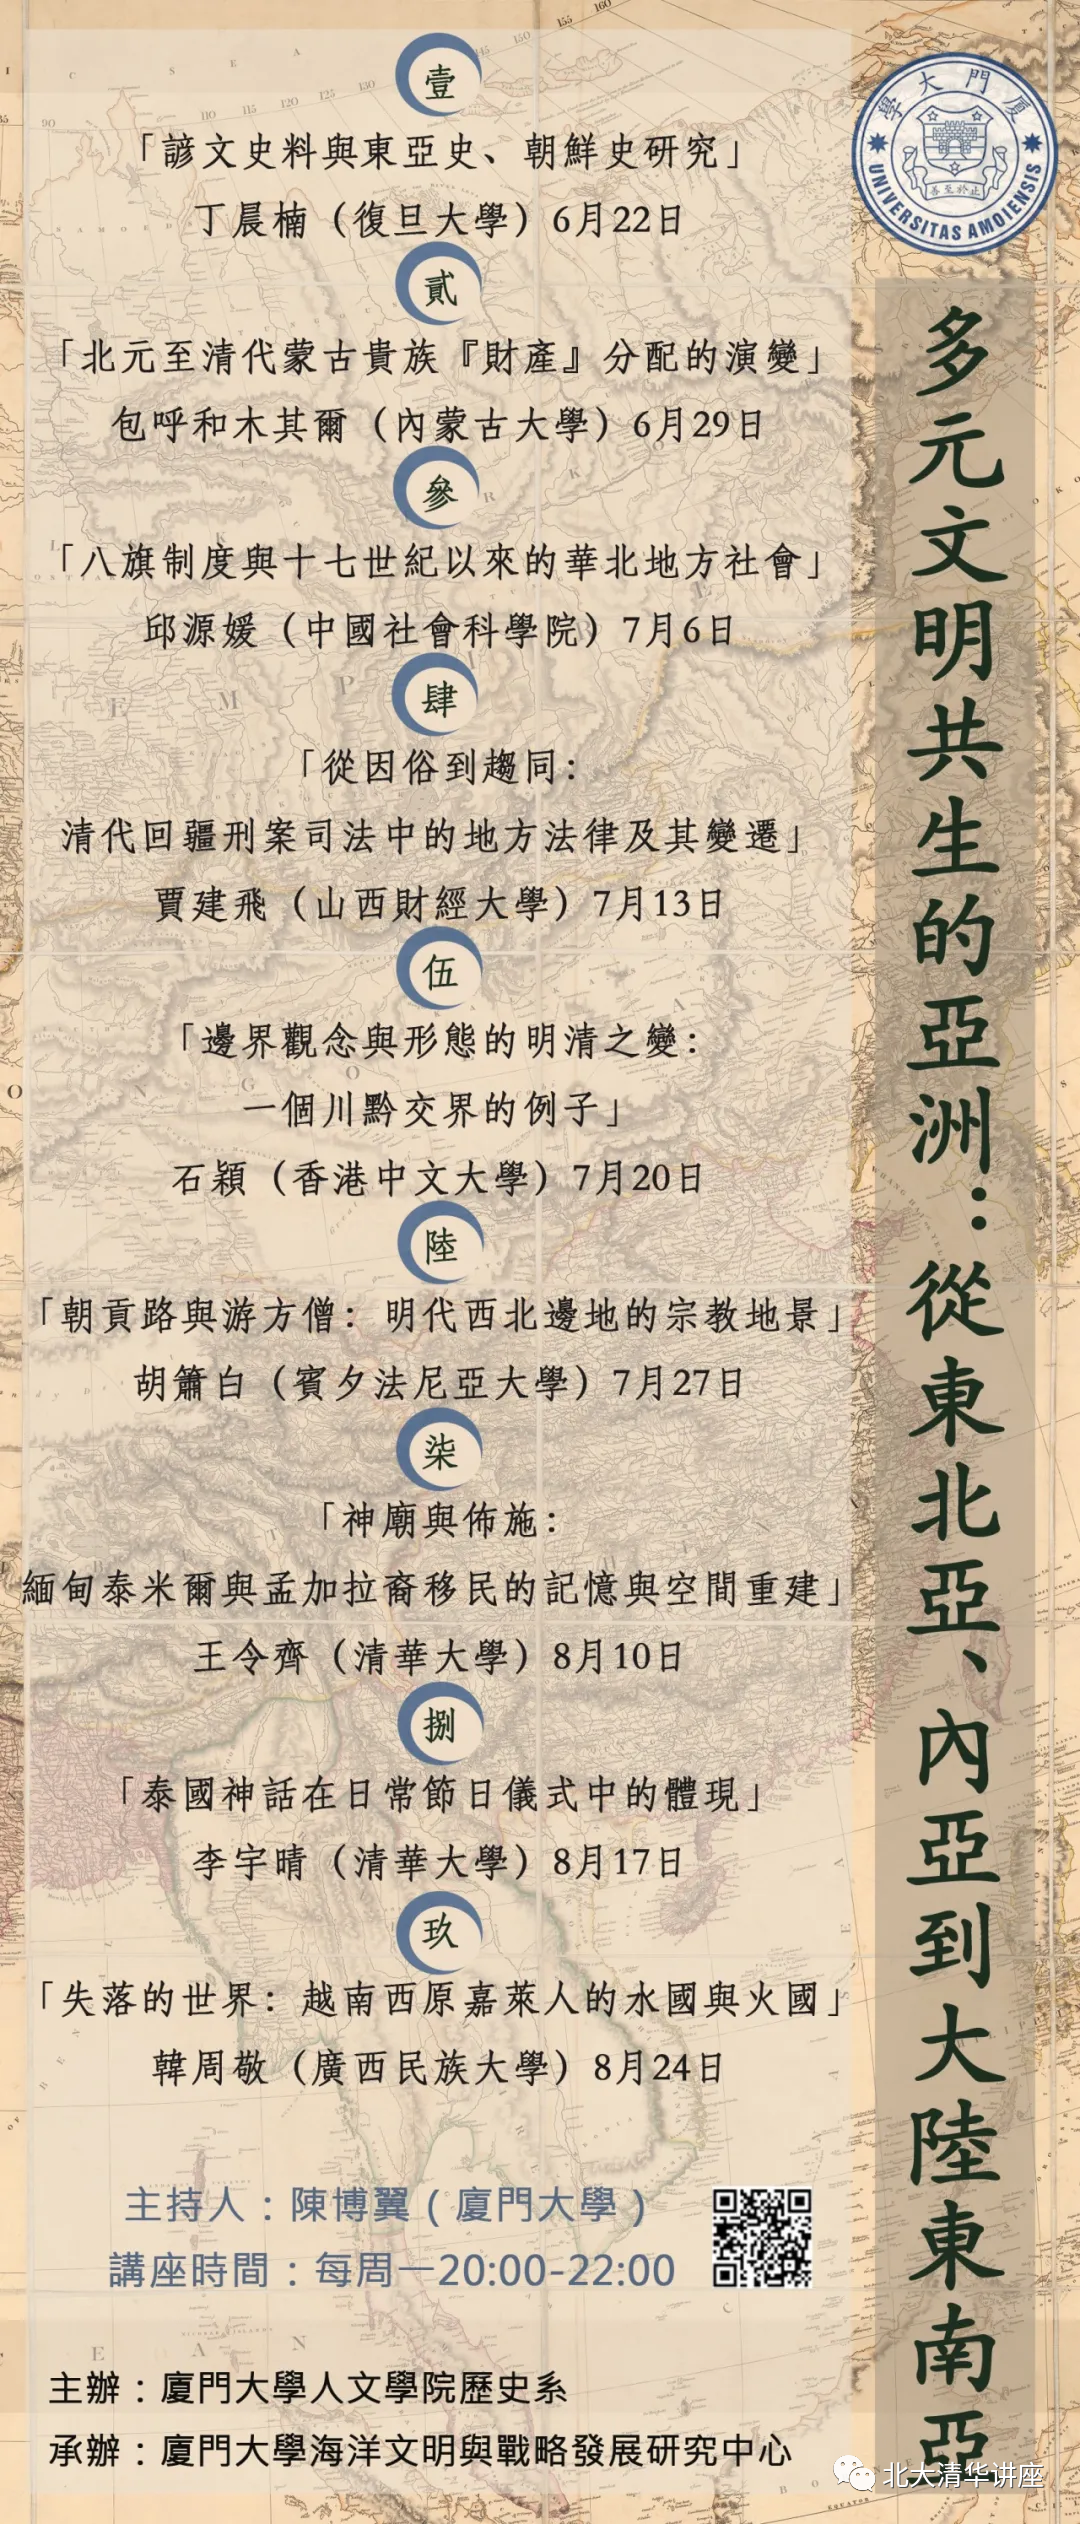 廈門大學
UNIVERSITAS AMOIENSIS
多元文明共生的亞洲：從東北亞、內亞到大陸東南亞
壹
「諺文史料與東亞史、朝鮮史研究」
丁晨楠（復旦大學）6月22日
貳
「北元至清代蒙古貴族『財產』分配的演變」
包呼和木其爾（內蒙古大學）6月29日
參
「八旗制度與十七世紀以來的華北地方社會」
邱源媛（中國社會科學院）7月6日
肆
「從因俗到趨同：
清代回疆刑案司法中的地方法律及其變遷」
賈建飛（山西財經大學）7月13日
伍
「邊界觀念與形態的明清之變：
一個川黔交界的例子」
石穎（香港中文大學）7月20日
陸
「朝貢路與游方僧：明代西北邊地的宗教地景」
胡簫白（賓夕法尼亞大學）7月27日
柒
「神廟與佈施：
緬甸泰米爾與孟加拉裔移民的記憶與空間重建」
王令齊（清華大學）8月10日
捌
「泰國神話在日常節日儀式中的體現」
李宇晴（清華大學）8月17日
玖
「失落的世界：越南西原嘉萊人的水國與火國」
韓周敬（廣西民族大學）8月24日
主持人：陳博翼（廈門大學）
講座時間：每周一20:00-22:00
主辦：廈門大學人文學院歷史系
承辦：廈門大學海洋文明與戰略發展研究中心
北大清华讲座